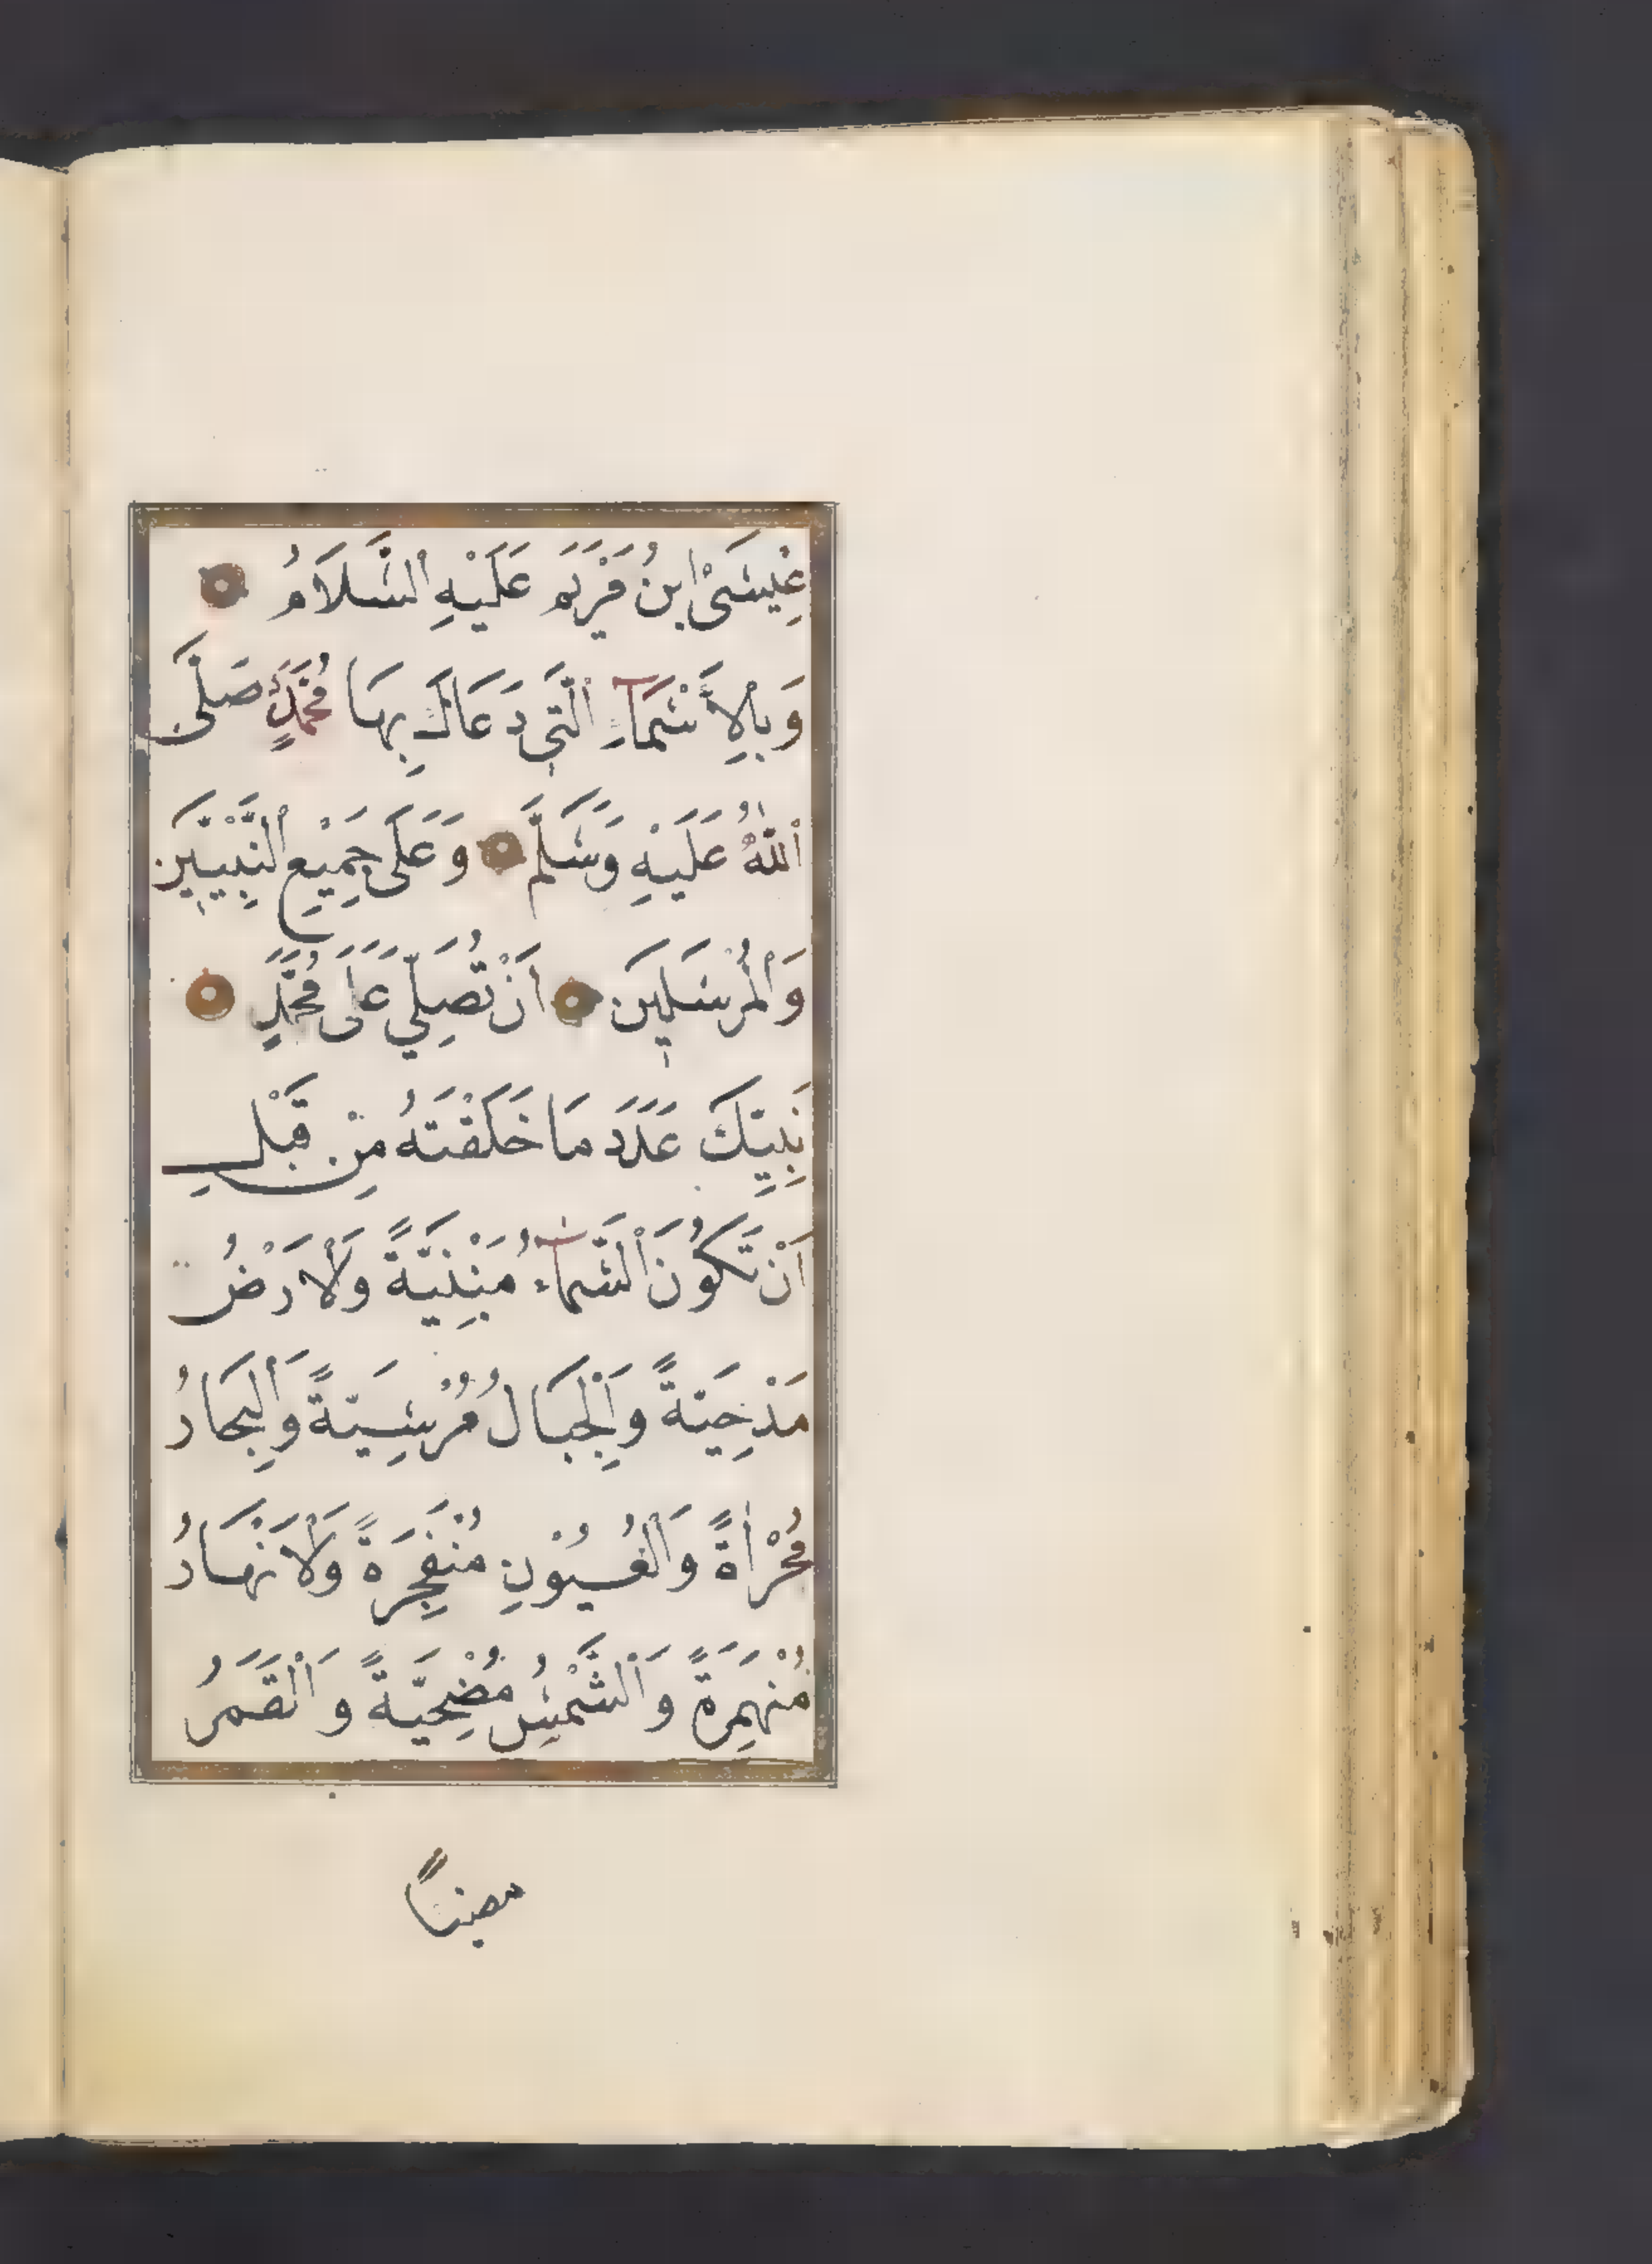 عِيسَىْ ابنُ مَرْيَمَ عَلَيْهِ السَّلَامُ
وَبِالْأَسْمَآءِ الَّتِي دَعَاكَ بِهَا مُحَمَّدٌ صَلَّى
اللّٰهُ عَلَيْهِ وَسَلَّمَ وَعَلَى جَمِيْعِ النَّبِيّٖينَ
وَالْمُرْسَلِينَ اَنْ تُصَلِّيَ عَلَى مُحَمَّدٍ
نَبِيِّكَ عَدَدَ مَا خَلَقْتَهُ مِنْ قَبْلِ
اَنْ تَكُونَ السَّمَآءُ مَبْنِيَّةً وَلْاَرْضُ
مَدْحِيَّةً وَالْجِبَالُ مُرْسِيَةً وَالْبِحَارُ
مُجْرٰاةً وَالْعُيُوْنِ مُنْفَجِرَةً وَلْاَنْهَارُ
مُنْهَمِرَةً وَالشَّمْسُ مُضْحِيَّةً وَالْقَمَرُ
مضيئاً